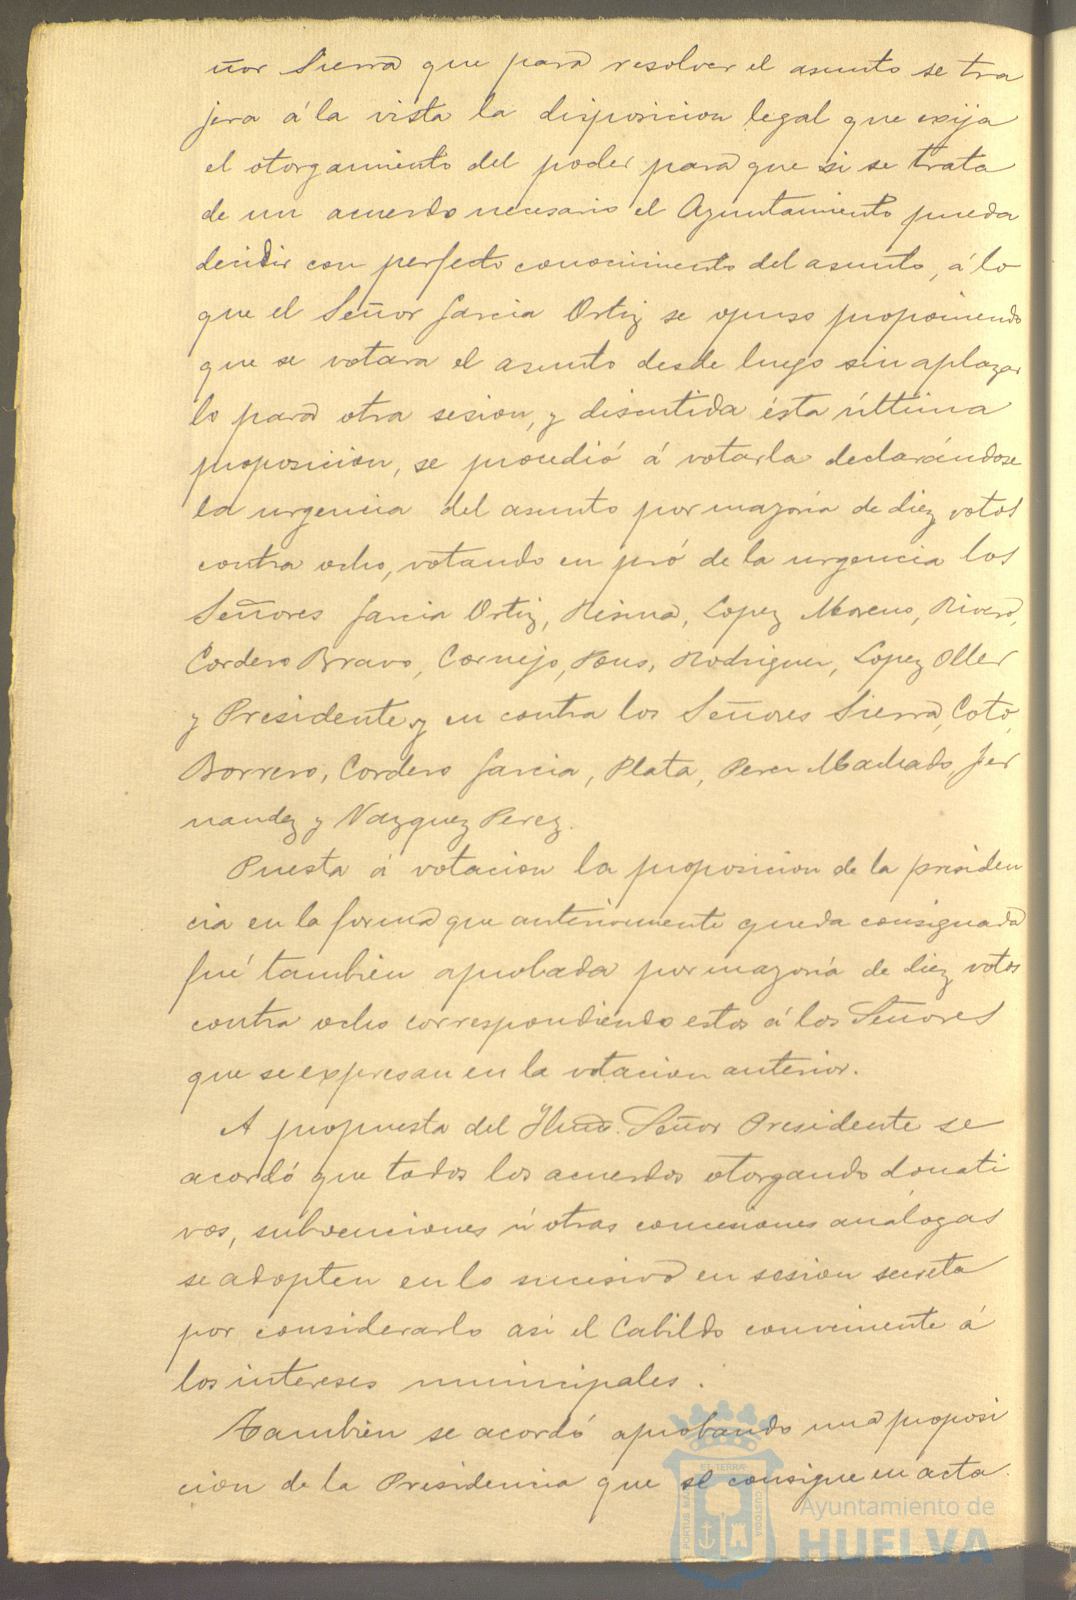 ñor Sierra que para resolver el asunto se tra
jera á la vista la disposicion legal que exija
el otorgamiento del poder para que si se trata
de un acuerdo necesario el Ayuntamiento pueda
decidir con perfecto conocimiento del asunto, á lo
que el Señor Garcia Ortiz se opuso proponiendo
que se votara el asunto desde luego sin aplazar
lo para otra sesion, y discutida ésta última
proposicion, se procedió á votarla declarándose
la urgencia del asunto por mayoría de diez votos
contra ocho, votando en pró de la urgencia los
Señores Garcia Ortiz, Risma, Lopez Moreno, Rivero,
Cordero Bravo, Cornejo, Pons, Rodriguez, Lopez Oller
y Presidente y en contra los Señores Sierra, Coto,
Borrero, Cordero Garcia, Plata, Perez Machado, Fer
nandez y Vazquez Perez.
Puesta á votacion la proposicion de la presiden
cia en la forma que anteriormente queda consignada
fué tambien aprobada por mayoría de diez votos
contra ocho correspondiendo estos á los Señores
que se expresan en la votacion anterior.
A propuesta del Ilmo. Señor Presidente se
acordó que todos los acuerdos otorgando donati
vos, subvenciones ú otras concesiones análogas
se adopten en lo sucesivo en sesion secreta
por considerarlo asi el Cabildo conveniente á
los intereses municipales.
Tambien se acordó aprobando una proposi
cion de la Presidencia que se consigne en acta
PORTUS MARIS
ET TERRÆ
CUSTODIA
Ayuntamiento de
HUELVA